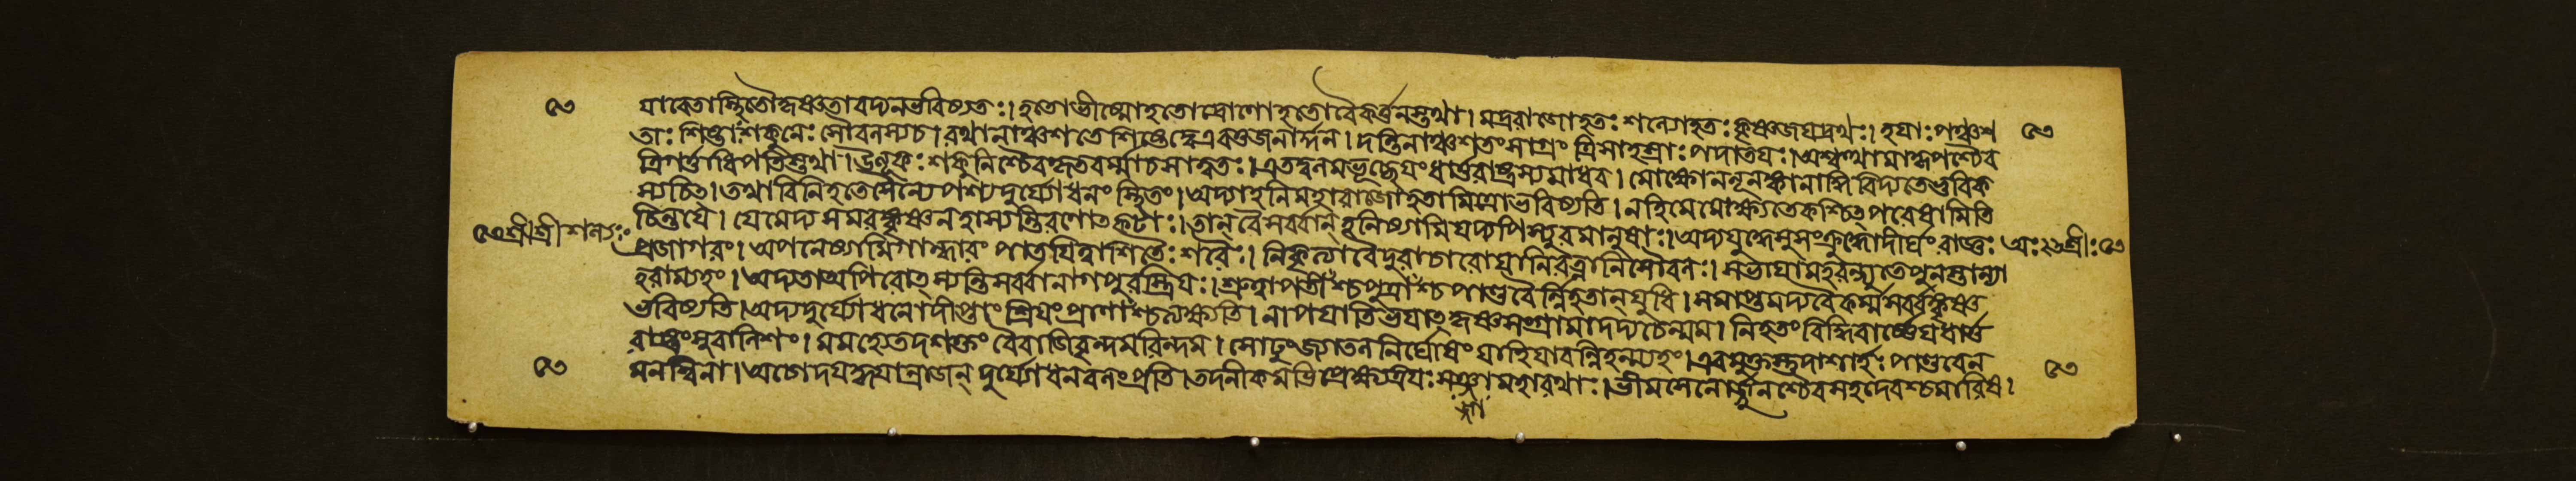 যাবেতাস্থিতৌকৃষ্ণতাবদ্যনভবিষ্যতঃ। হতোভীষ্মোহতোদ্রোণোহতোবৈকর্ত্তনস্তথা। মদ্ররাজোহতঃ শল্যোহতঃ কৃষ্ণজয়দ্রথঃ। হয়াঃ পঞ্চশ
তাঃ শিষ্টাঃশকুনেঃ সৌবলস্যচ। রথানাঞ্চশতে শিষ্টেদ্বেএবতুজনার্দ্দন। দন্তিনাঞ্চশতংসাগ্রং ত্রিসাহস্রাঃ পদাতয়ঃ। অশ্বত্থামাকৃপশ্চৈব
ত্রিগর্ত্তাধিপতিস্তথা। উলূকঃ শকুনিশ্চৈবকৃতবর্ম্মাচসাত্বতঃ। এতদ্বলমভূচ্ছেষংধার্ত্তরাষ্ট্রস্যমাধব। মোক্ষোননূনঙ্কালাদ্ধিবিদ্যতেভুবিক
স্যচিৎ। তথাবিনিহতেসৈন্যেপশ্যদুর্য্যোধনং স্থিতং। অদ্যাহনিমহারাজোহতামিত্রোভবিষ্যতি। নহিমেমোক্ষ্যতেকশ্চিৎপরেষামিতি
চিন্তয়ে। যেমেদ্য সমরঙ্কৃষ্ণনহাস্যন্তিরণোৎকটাঃ। তান্ বৈসর্ব্বান্ হনিষ্যামিযদ্যপিস্যুরমানুষাঃ। অদ্যযুদ্ধেসুসংক্রুদ্ধোদীর্ঘংরাজ্ঞঃ
শ্রীশ্রীশল্যঃ প্রজাগরং। অপনেষ্যামিগান্ধারং পাতয়িত্বাশিতৈঃ শরৈঃ। নিকৃত্যাবৈদুরাচারোয়ানিরত্নানিসৌবলঃ। সভায়ামহরদ্দ্যূতেপুনস্তান্যা অঃ২৬শ্রীঃ
হরাম্যহং। অদ্যতাঅপিরোৎস্যন্তিসর্ব্বানাগপুরস্ত্রিয়ঃ। শ্রুত্বাপতীংশ্চপুত্রাংশ্চপাণ্ডবৈর্ন্নিহতান্ যুধি। সমাপ্তমদ্যবৈকর্ম্মসর্ব্বঙ্কৃষ্ণ
ভবিষ্যতি। অদ্যদুর্য্যোধনোদীপ্তাংশ্রিয়ংপ্রাণাংশ্চত্যক্ষ্যতি। নাপযাতিভয়াৎকৃষ্ণসংগ্রামাদদ্যচেন্মম। নিহতংবিদ্ধিবার্ষ্ণেয়ধার্ত্ত
রাষ্ট্রংসুবালিশং। মমহ্যেতদশক্তংবৈবাজিবৃন্দমরিন্দম। সোঢ়ুংজ্যাতলনির্ঘোষং যাহিযাবন্নিহন্ম্যহং। এবমুক্তস্তুদাশার্হঃ পাণ্ডবেন
মনস্বিনা। অচোদয়দ্ধয়ান্রাজন্ দুর্য্যোধনবলংপ্রতি। তদনীকমভিপ্রেক্ষ্যত্রয়ঃ সজ্জামহারথাঃ। ভীমসেনোর্জ্জুনশ্চৈবসহদেবশ্চমারিষ।
জ্জা